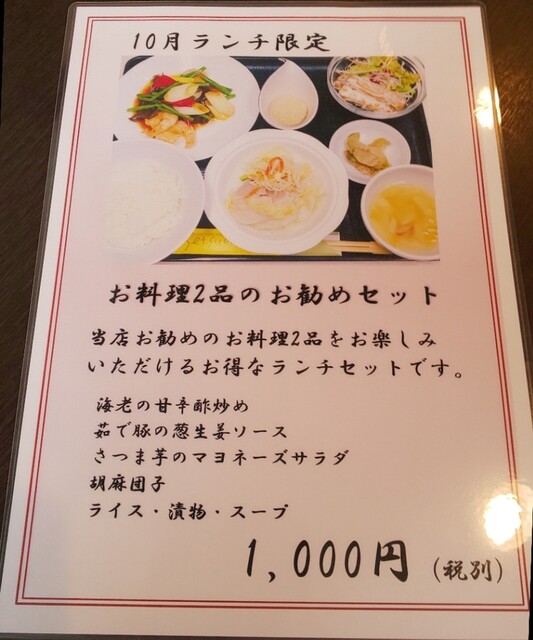 10月ランチ限定
お料理2品のお勧めセット
当店お勧めのお料理2品をお楽しみ
いただけるお得なランチセットです。
海老の甘辛酢炒め
茹で豚の葱生姜ソース
さつま芋のマヨネーズサラダ
胡麻団子
ライス・漬物・スープ
1,000円 (税別)